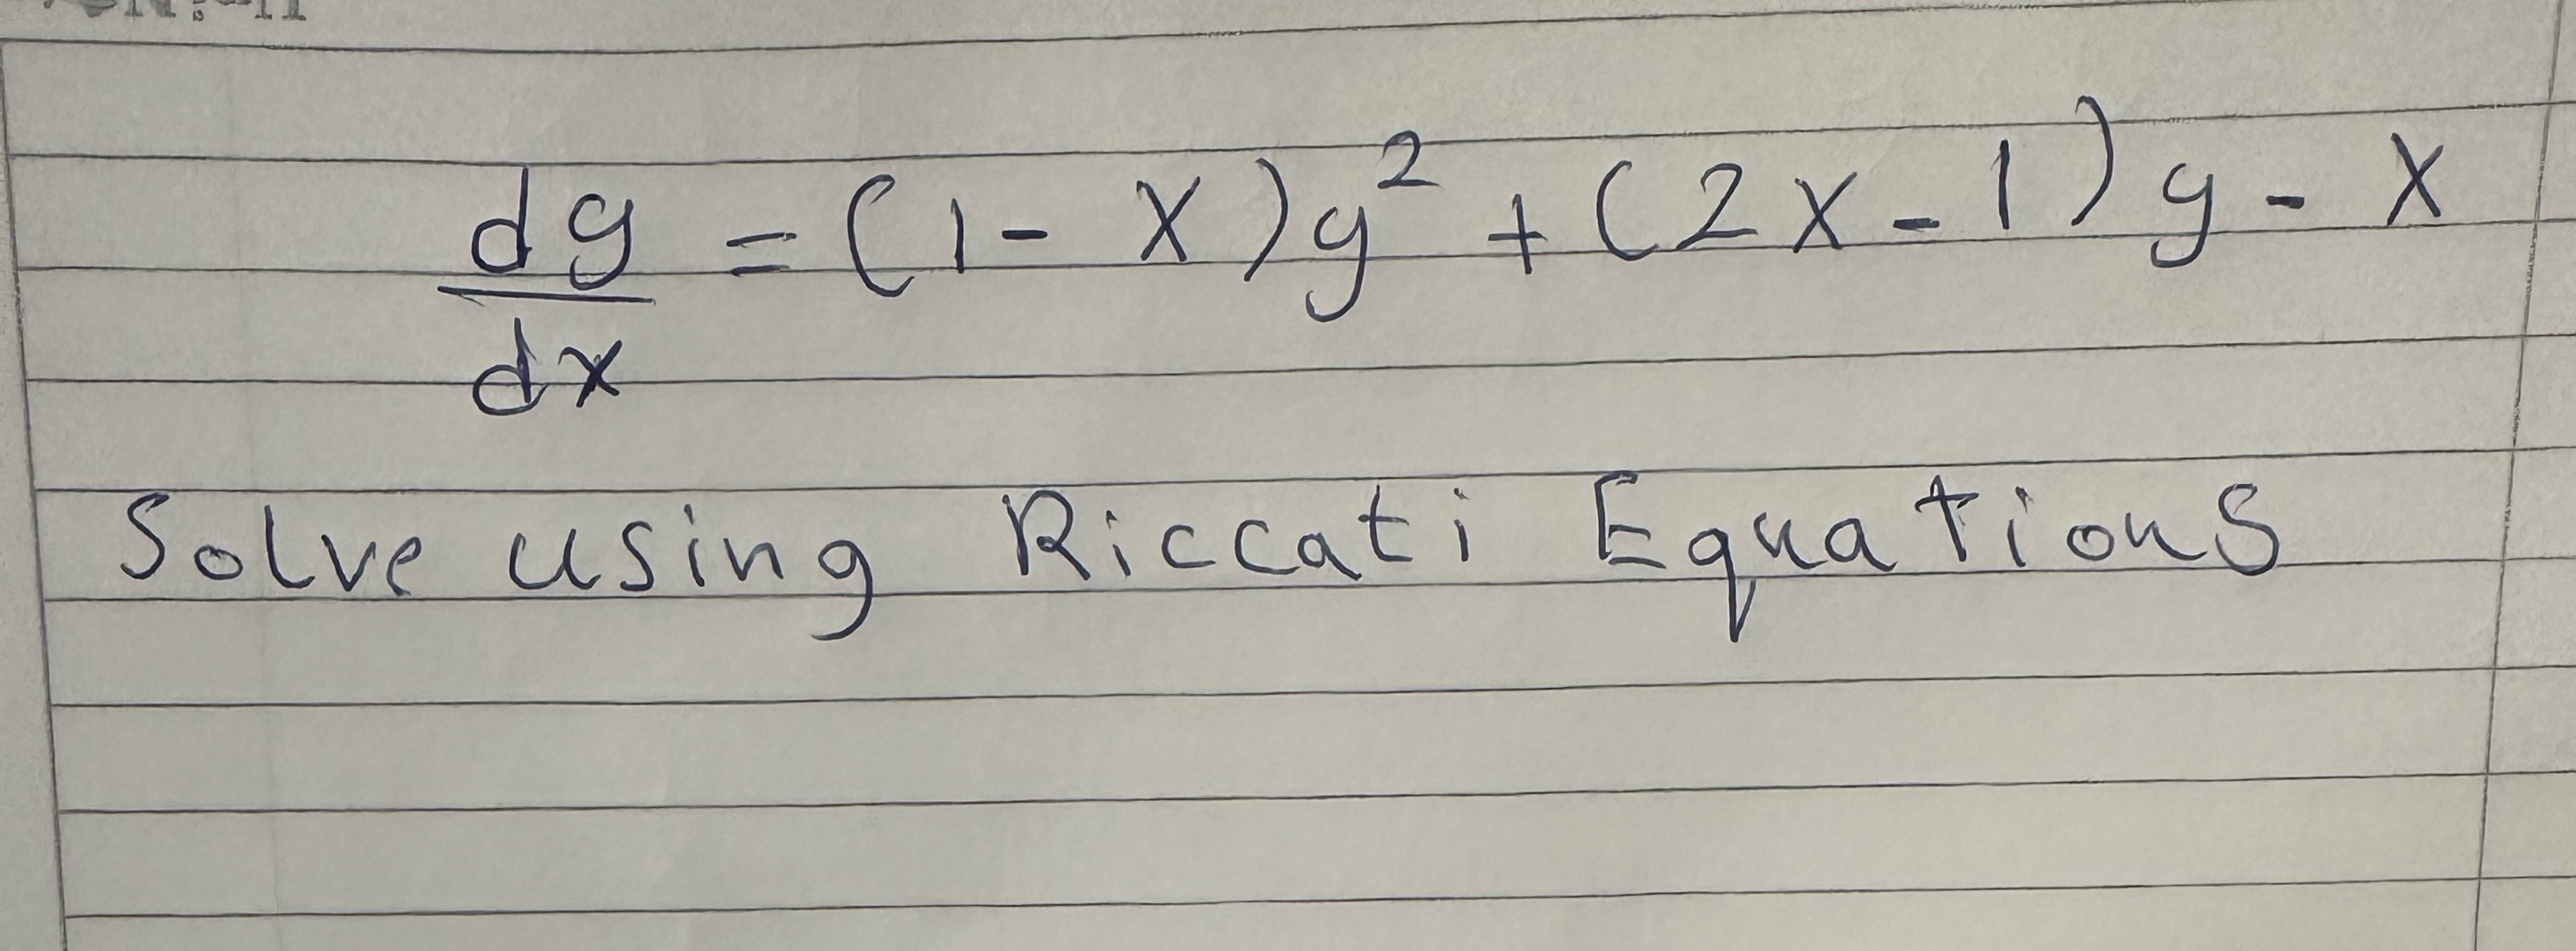 dy/dx = (1 - x)y² + (2x - 1)y - x
Solve using Riccati Equations